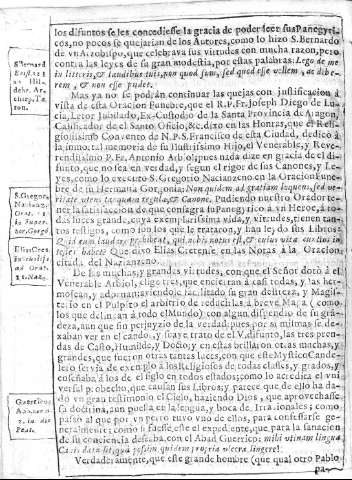 los difuntos se les concediesse la gracia de poder leer sus Panegyri-
cos, no pocos se quejarian de los Autores, como lo hizo S. Bernardo
de vn Arçobispo, que celebrava sus virtudes con mucha razon, pero
contra las leyes de su gran modestia, por estas palabras: Lego de me
in litteris, & laudibus tuis, non quod sum, sed quod esse vellem, ac
rem, & non esse pudet.
Mas ya no se podràn continuar las quejas con justificacion à
vista de esta Oracion Funebre, que el R.P.Fr. Joseph Diego de
cia, Letor Jubilado, Ex-Custodio de la Santa Provincia de Aragon,
Calificador de el Santo Oficio, &c. dixo en las Honras, que el
giosissimo Convento de N.P.S. Francisco de esta Ciudad, dedicò à
la inmortal memoria de su Ilustrissimo Hijo, el Venerable, y Reve-
rendissimo P. Fr. Antonio Arbiol; pues nada dize en gracia del di-
funto, que no sea en verdad, y segun el rigor de sus Canones, y Le-
yes, como lo executò S. Gregorio Nacianzeno en la Oracion Fune-
bre de su Hermana Gorgonia: Non quidem ad gratiam loquens, sed ve-
ritate
la satisfacion de que consagra su Panegyrico à vn Heroe,
das luces grande, cuya exemplarissima vida, y virtudes, tienen tan-
tos testigos, como son los que le trataron, y han leydo sus Libros:
habete Que dixo Elias Cretense en las Notas à la Oracion
citada del Nazianzeno.
De las muchas, y grandes virtudes, con que el Señor dotò à el
Venerable Arbiol, elige tres, que encierran à casi todas, y las her-
mosean, y adornan; siendole facilitado su gran destreza, y Magis-
terio en el Pulpito el arbitrio de reducirlas à breve Mapa (como
los que delinean à todo el Mundo) con algun dispendio de su gran-
deza, aun que sin perjuyzio de la verdad; pues por si mismas se de-
xaban ver en el cando, y suave trato de el V. difunto, las tres pren-
das de Casto, Humilde, y Docto; y en estas brillaron otras muchas, y
grandes, que fueron otras tantas luces, con que este Mystico Cande-
lero servia de exemplo à los Religiosos de todas classes, y grados, y
enseñaba à los de el siglo en todos estados; como lo acredita el vni-
versal provecho, que causan sus Libros; y parece que de ello ha da-
do vn gran testimonio el Cielo, haziendo Dios, que aprovechasse
su doctrina, aun puesta en la lengua, y boca de Irracionales; como
passò al que por vn perro tuvo vno de ellos, para confessarse ge-
neralmente; como si fuesse este el expediente, que para la sanacion
de su conciencia deseaba, con el Abad Guerrico: mihi utinam lingua
Canis data sit, qua possim quidem propria ulcera lingere!
Verdaderamente, que este grande hombre (que qual otro Pablo
pa-
S. Bernard.
S. Gregor.
Elias Cres.
Guerricus